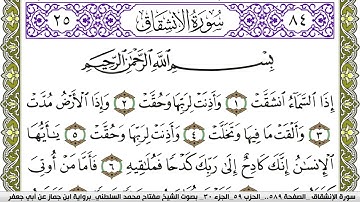 ٨٤ سُورَةُ الِانشِقَاقِ ٢٥
بِسْمِ اللَّهِ الرَّحْمَٰنِ الرَّحِيمِ
إِذَا السَّمَآءُ انشَقَّتْ ١ وَأَذِنَتْ لِرَبِّهَا وَحُقَّتْ ٢ وَإِذَا الْأَرْضُ مُدَّتْ
٣ وَأَلْقَتْ مَا فِيهَا وَتَخَلَّتْ ٤ وَأَذِنَتْ لِرَبِّهَا وَحُقَّتْ ٥ يَٰٓأَيُّهَا
الْإِنسَٰنُ إِنَّكَ كَادِحٌ إِلَىٰ رَبِّكَ كَدْحًا فَمُلَٰقِيهِ ٦ فَأَمَّا مَنْ أُوتِىَ
سورة الإنشقاق .. الصفحة ٥٨٩.. الحزب ٥٩ .. الجزء ٣٠ .. بصوت الشيخ مفتاح محمد السلطني .. برواية ابن جماز عن أبي جعفر